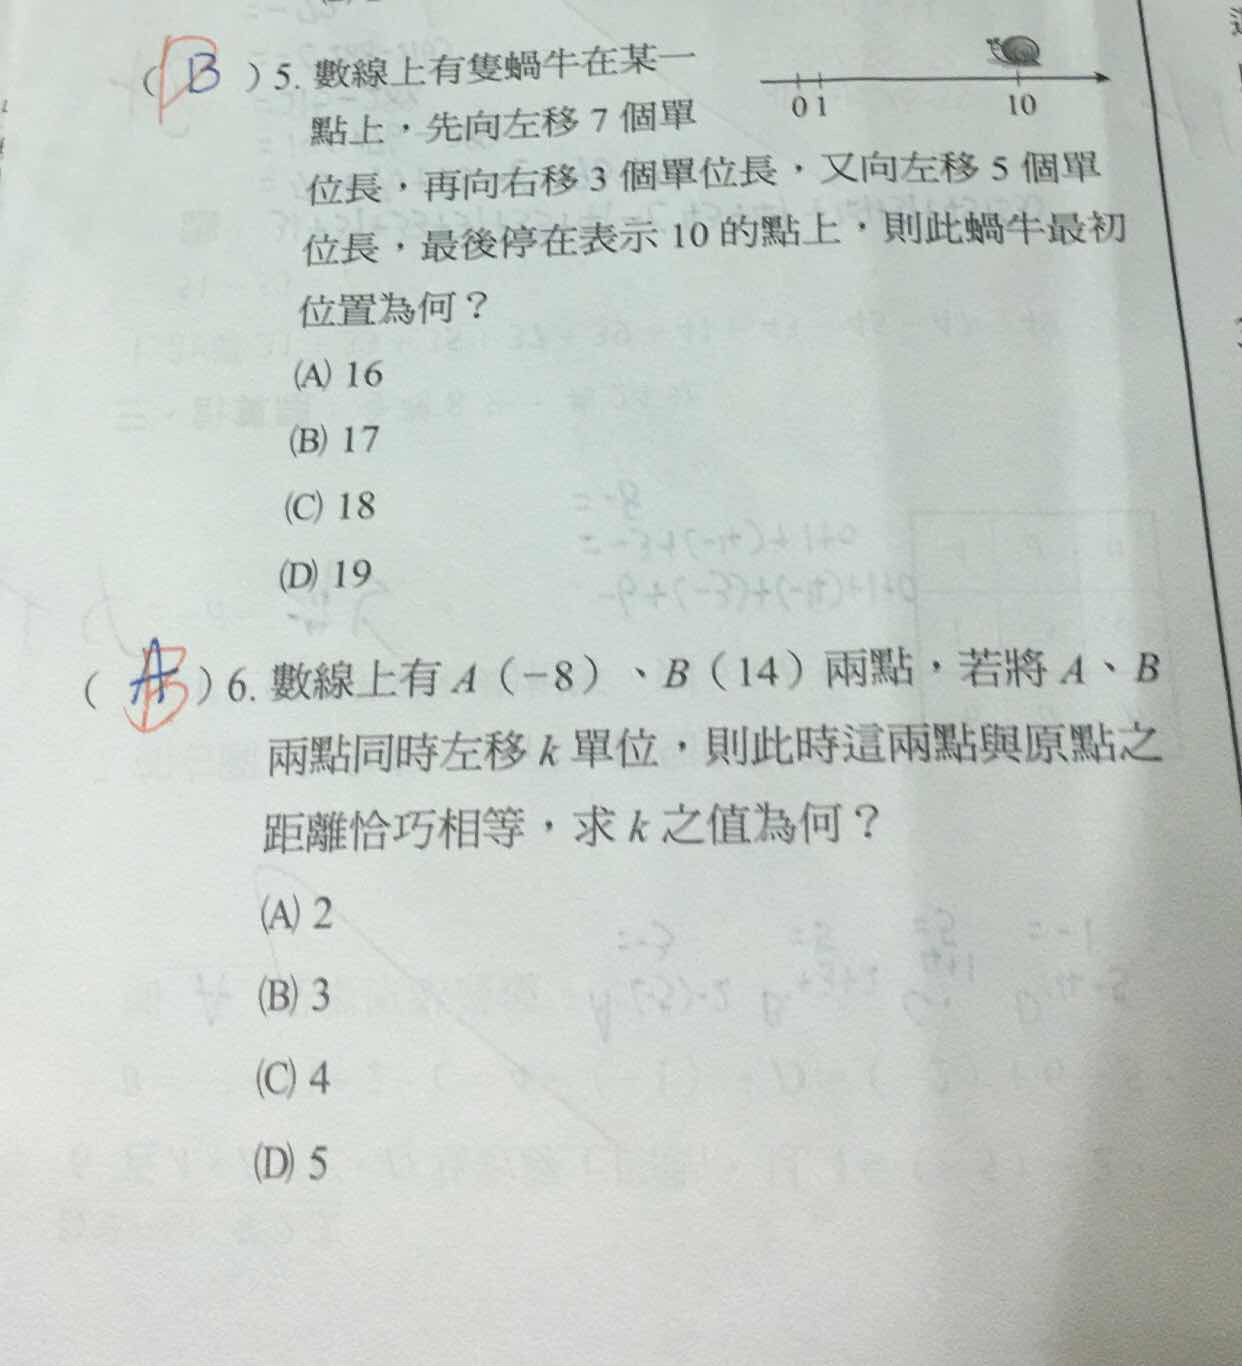 ( B ) 5. 數線上有隻蝸牛在某一
點上，先向左移 7 個單
0 1 10
位長，再向右移 3 個單位長，又向左移 5 個單
位長，最後停在表示 10 的點上，則此蝸牛最初
位置為何？
(A) 16
(B) 17
(C) 18
(D) 19
( A B ) 6. 數線上有 A（−8）、B（14）兩點，若將 A、B
兩點同時左移 k 單位，則此時這兩點與原點之
距離恰巧相等，求 k 之值為何？
(A) 2
(B) 3
(C) 4
(D) 5